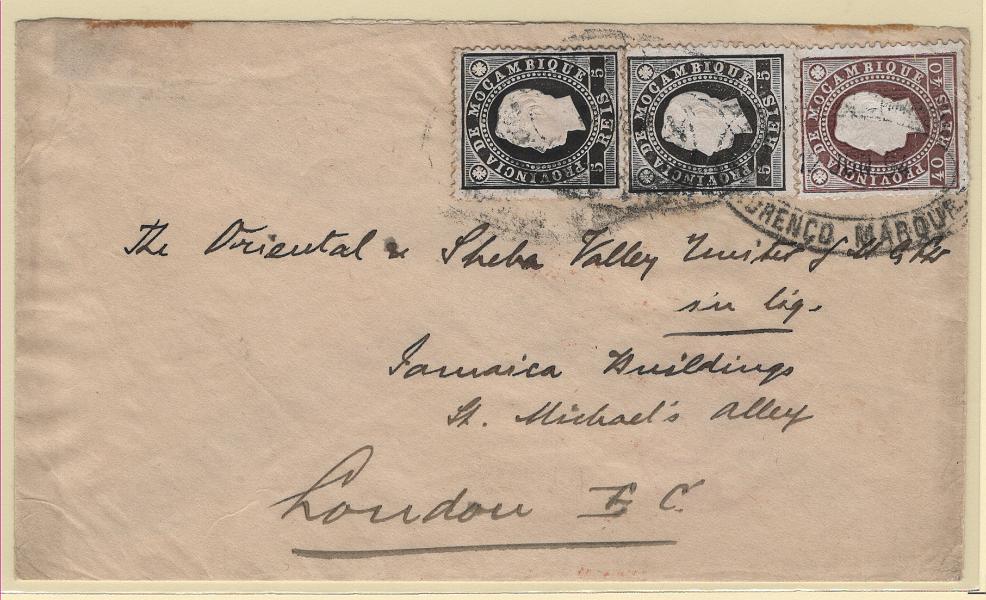 PROVINCIA DE MOÇAMBIQUE 5 REIS 5
PROVINCIA DE MOÇAMBIQUE 5 REIS 5
PROVINCIA DE MOÇAMBIQUE 40 REIS 40
MARQUE
The Oriental & Sheba Valley
in liq.
Jamaica Buildings
St. Michael's Alley
London E C.